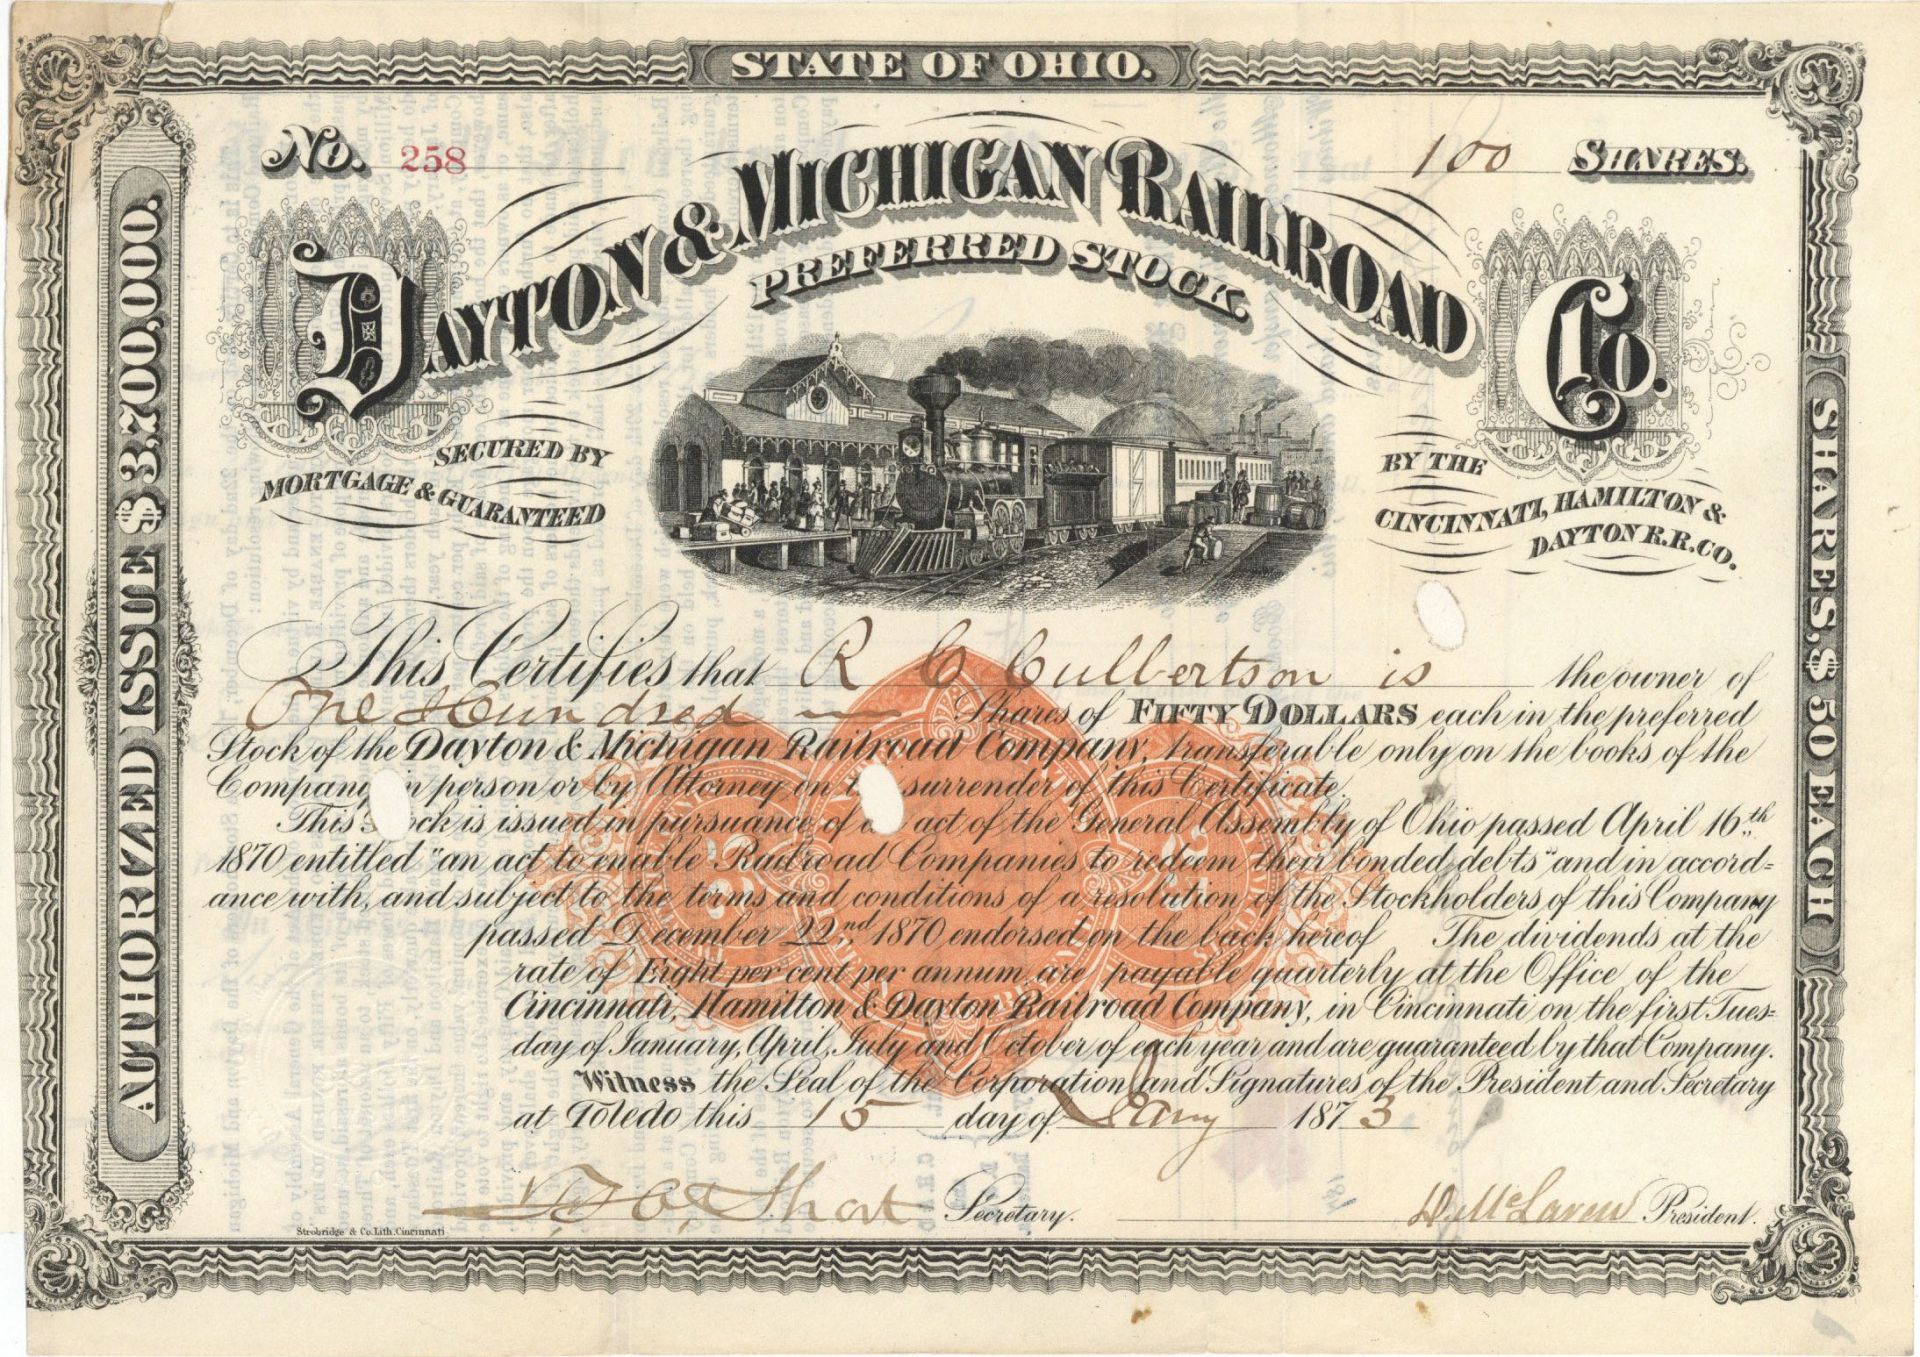 STATE OF OHIO.
No. 258
100 SHARES.
DAYTON & MICHIGAN RAILROAD Co.
PREFERRED STOCK.
SECURED BY
MORTGAGE & GUARANTEED
BY THE
CINCINNATI, HAMILTON &
DAYTON R.R.CO.
AUTHORIZED ISSUE $3,700,000.
SHARES, $50 EACH
This Certifies that R C Culbertson is the owner of
One Hundred Shares of FIFTY DOLLARS each in the preferred
Stock of the Dayton & Michigan Railroad Company, transferable only on the books of the
Company in person or by Attorney on surrender of this Certificate.
This Stock is issued in pursuance of act of the General Assembly of Ohio passed April 16th
1870 entitled "an act to enable Railroad Companies to redeem their bonded debts" and in accord=
ance with, and subject to the terms and conditions of a resolution of the Stockholders of this Company
passed December 22nd, 1870 endorsed on the back hereof The dividends at the
rate of Eight per cent per annum are payable quarterly at the Office of the
Cincinnati, Hamilton & Dayton Railroad Company, in Cincinnati on the first Tues=
day of January, April, July and October of each year and are guaranteed by that Company.
Witness the Seal of the Corporation and Signatures of the President and Secretary
at Toledo this 15 day of Jany 1873
Short Secretary.
McLaren President.
Strobridge & Co. Lith. Cincinnati